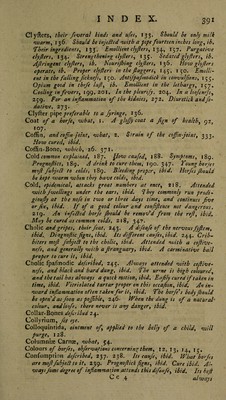 INDEX. 391
Clysters, their several kinds and uses, 135. Should be only milk
warm, 136. Should be injected with a pipe fourteen inches long, ib.
Their ingredients, 135. Emollient clysters, 134, 157. Purgative
clysters, 134. Strengthening clysters, 135. Sedated glysters, ib.
Astringent glysters, ib. Nourishing clysters, 136. How glysters
operate, ib. Proper clysters in the staggers, 145, 150. Emolli-
ent in the falling sickness, 150. Antispasmodick in convulsions, 155.
Opium good in these last, ib. Emollient in the lethargy, 157.
Cooling in fevers, 199, 201. In the pleurisy, 209. In a looseness,
259. For an inflammation of the kidnies, 272. Diuretick and se-
dative, 273.
Clyster pipe preferable to a syringe, 136.
Coat of a horse, what, 1. A glossy coat a sign of health, 97,
107.
Coffin, and coffin-joint, what, 2. Strain of the coffin-joint, 333.
How cured, ibid.
Coffin-Bone, which, 26. 371.
Cold common explained, 187. How caused, 188. Symptoms, 189.
Prognosticks, 189. A drink to cure them, 190. 347. Young horses
most subject to colds, 189. Bleeding proper, ibid. Horses should
be kept warm when they have colds, ibid.
Cold, epidemical, attends great numbers at once, 218. Attended
with swellings under the ears, ibid. They commonly run prodi-
giously at the nose in two or three days time, and continues five
or six, ibid. If of a good colour and consistence not dangerous.
219. An infected horse should be removed from the rest, ibid.
May be cured as common colds, 218, 347.
Cholic and gripes, their seat, 243. A disease of the nervous system,
ibid. Diagnostic signs, ibid. Its different causes, ibid. 244. Crib-
biters most subject to the cholic, ibid. Attended with a costive-
ness, and generally with a strangury, ibid. A carminative ball
proper to cure it, ibid.
Cholic spasmodic described, 245. Always attended with costive-
ness, and black and hard dung, ibid. The urine is high coloured,
and the tail has always a quick motion, ibid. Easily cured if taken in
time, ibid. Vitriolated tartar proper on this occasion, ibid. An in-
ward inflammation often taken for it, ibid. The horse's body should
be open'd as soon as possible, 246. When the dung is of a natural-
colour, and loose, there never is any danger, ibid.
Collar-Bones described 24.
Collyrium, see eye.
Colloquintida, ointment of, applied to the belly of a child, will
purge, 128.
Columniæ Carnæ, what, 54.
Colours of horses, observations concerning them, 12, 13, 14, 15.
Consumption described, 237. 238. Its cause, ibid. What horses
are most subject to it, 239. Prognostick signs, ibid. Cure ibid. Al-
ways some degree of inflammation attends this disease, ibid. Its best
C c 4 always